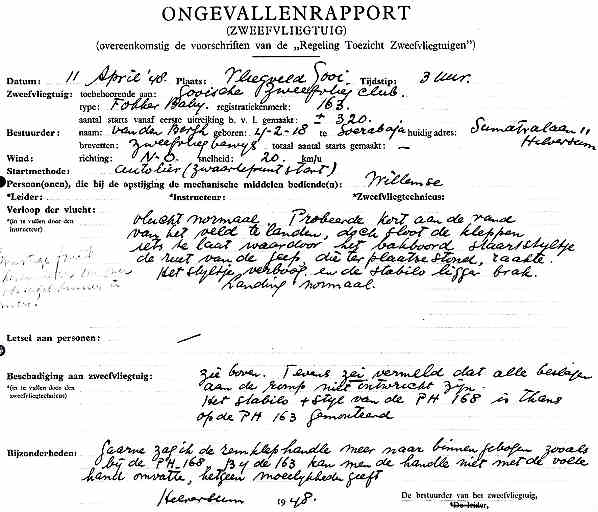 ONGEVALLENRAPPORT
(ZWEEFVLIEGTUIG)
(overeenkomstig de voorschriften van de „Regeling Toezicht Zweefvliegtuigen”)
Datum: 11 April '48. Plaats: Vliegveld Gooi Tijdstip: 3 uur.
Zweefvliegtuig: toebehoorende aan: Gooische Zweefvlieg Club.
type: Fokker Baby. registratiekenmerk: 163.
aantal starts vanaf eerste uitreiking b. v. l. gemaakt: ± 320.
Bestuurder: naam: van den Bergh geboren: 4-2-18 te Soerabaja huidig adres: Sumatralaan 11
brevetten: zweefvliegbewijs totaal aantal starts gemaakt: – Hilversum
Wind: richting: N-O. snelheid: 20. km/u
Startmethode: autolier (zwaartepunt start)
Persoon(onen), die bij de opstijging de mechanische middelen bediende(n): Willemse
*Leider: *Instructeur: *Zweefvliegtechnicus:
Verloop der vlucht: vlucht normaal. Probeerde kort aan de rand
*(in te vullen door den instructeur) van het veld te landen, doch sloot de kleppen
iets te laat waardoor het bakboord staartstyltje
de ruit van de jeep, die ter plaatse stond, raakte.
Het styltje verboog en de stabilo ligger brak.
Landing normaal.
Letsel aan personen: —
Beschadiging aan zweefvliegtuig: zie boven. Tevens zei vermeld dat alle beslagen
*(in te vullen door den zweefvliegtechnicus) aan de romp niet ontwricht zyn.
Het stabilo + styl van de PH 168 is thans
op de PH 163 gemonteerd
Bijzonderheden: Gaarne zag ik de remklephandle meer naar binnen gebogen zooals
bij de PH-168. By de 163 kan men de handle niet met de volle
hand omvatte, hetgeen moeilykheden geeft
Hilversum 1948.
De bestuurder van het zweefvliegtuig,
*De leider,